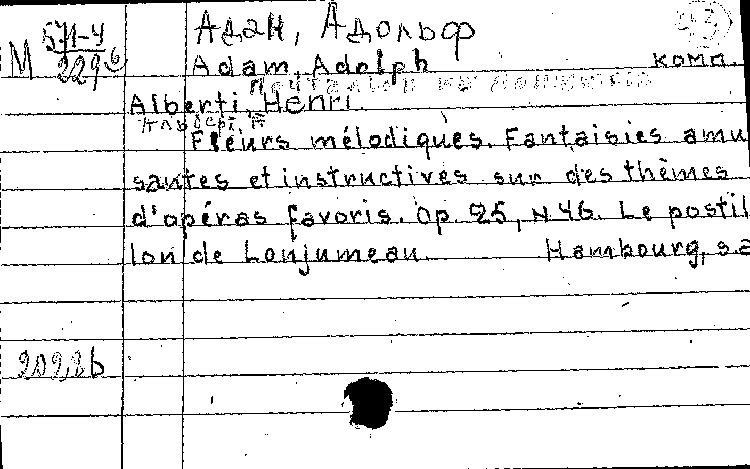 М 571-4
229б
Адан, Адольф
Adam, Adolph комм.
Alberti, Henri.
Fleurs mélodiques. Fantaisies amu
santes et instructives sur des thèmes
d'opéras favoris. Op. 25, N 46. Le postil
lon de Lonjumeau. Hambourg, s.a